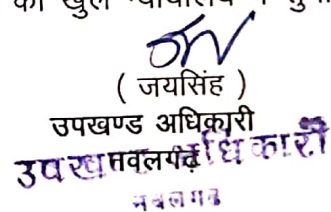 का खुले न्यायालय में सुना
( जयसिंह )
उपखण्ड अधिकारी
नवलगढ़
उपखण्ड अधिकारी
नवलगढ